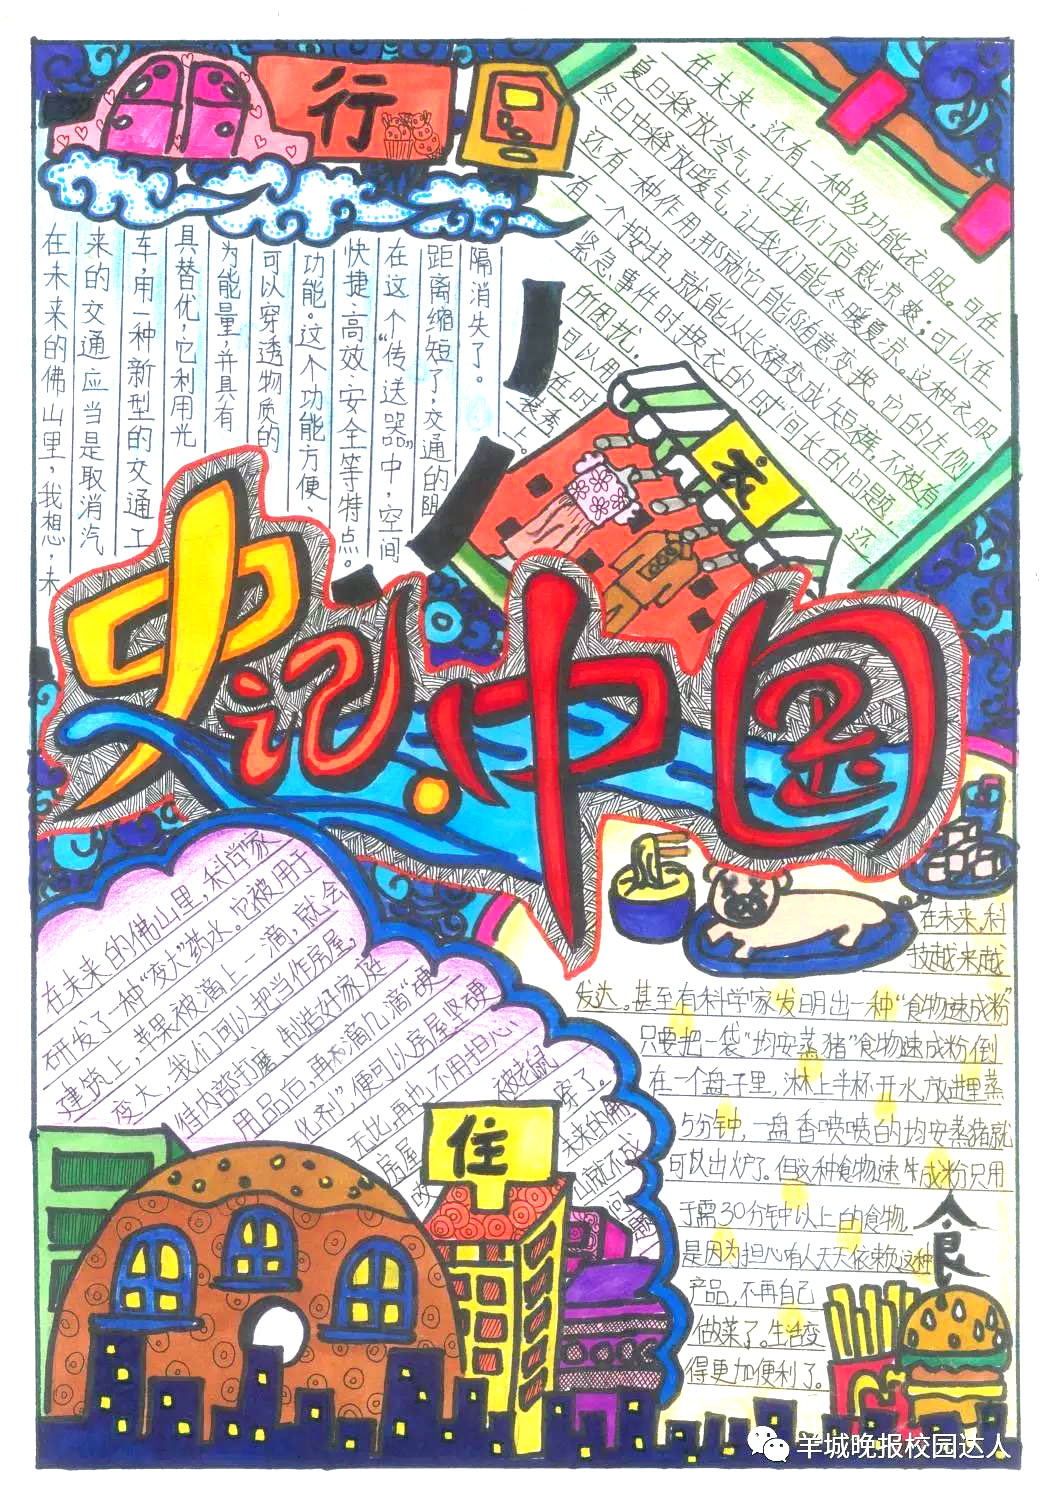 行
在未来的佛山里，我想，未
来的交通应当是取消汽
车，用一种新型的交通工
具替优，它利用光
为能量，并具有
可以穿透物质的
功能。这个功能方便、
快捷、高效、安全等特点。
在这个“传送器”中，空间
距离缩短了，交通的阻
隔消失了。
在未来，还有一种多功能衣服。可在
夏日释放冷气，让我们倍感凉爽；可以在
冬日中释放暖气，让我们能冬暖夏凉。这种衣服
还有一种作用，那就它能随意变换。它的左侧
有一个按扭，就能从长裙变成短裤，不被有
紧急事件时换衣的时间长的问题，
所困扰。还
可以用
在时
装秀
上。
衣
史记·中国
在未来的佛山里，科学家
研发了一种“变大”药水。它被用于
建筑——，苹果被滴上一滴，就会
变大，我们可以把当作房屋，
往内部打磨，制造好家庭
用品后，再滴几滴“硬
化剂”，便可以房屋坚硬
无比，再也不用担心，
房屋被老鼠
咬穿了。
未来的佛
山就不成
问题
住
在未来，科
技越来越
发达。甚至有科学家发明出一种“食物速成粉”
只要把一袋“均安蒸猪”食物速成粉倒
在一个盘子里，淋上半杯开水，放进里蒸
5分钟，一盘香喷喷的均安蒸猪就
可以出炉了。但这种食物速成粉只用
于需30分钟以上的食物，
是因为担心有人天天依赖这种
产品，不再自己
做菜了。生活变
得更加便利了。
食
羊城晚报校园达人